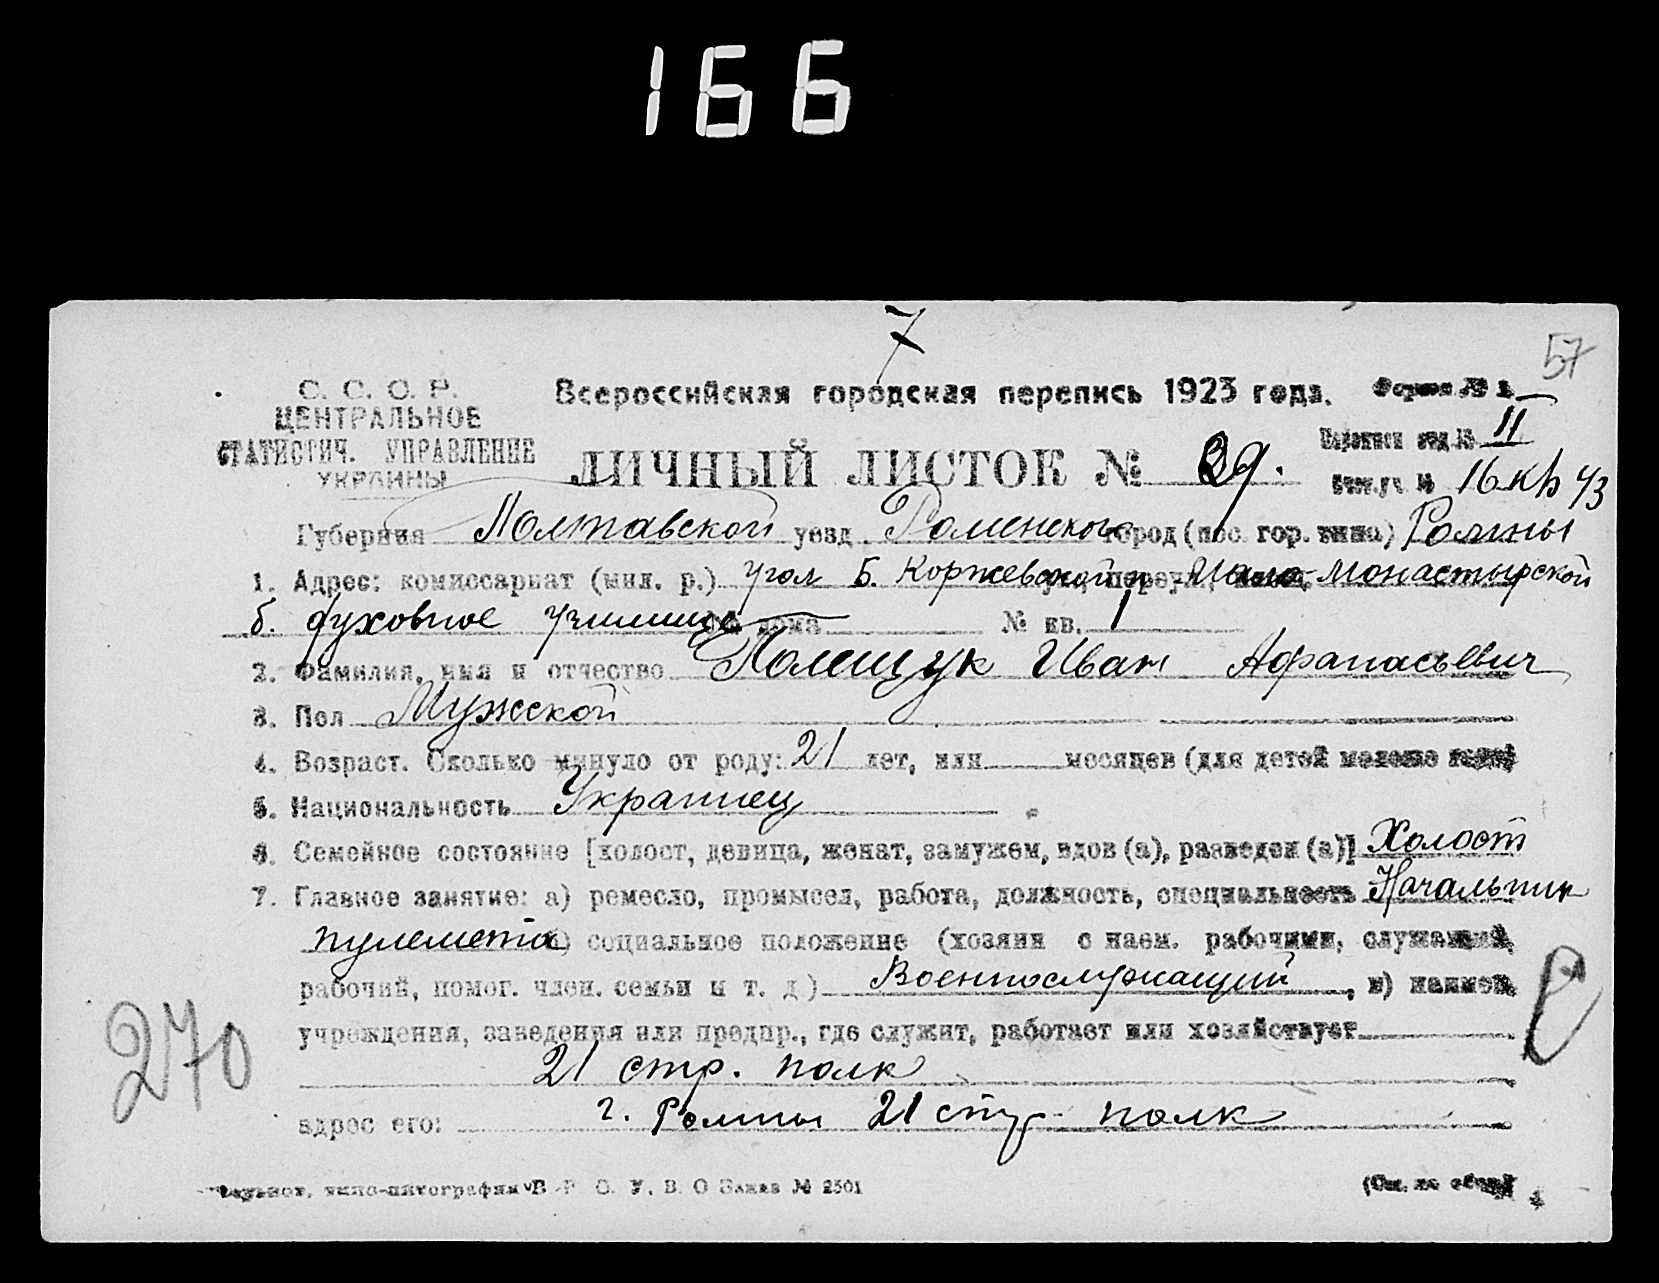 166
7
57
С. С. С. Р.
ЦЕНТРАЛЬНОЕ
СТАТИСТИЧ. УПРАВЛЕНИЕ
УКРАИНЫ
Всероссийская городская перепись 1923 года. Форма №
ЛИЧНЫЙ ЛИСТОК № 39. 11
16 кв 43
Губерния Полтавской уезд Роменского город (пос. гор. типа) Ромны
1. Адрес: комиссариат (мил. р.) угол Б. Коржевской и Мало Монастырской
б. духовное училище № дома № кв. 1
2. Фамилия, имя и отчество Полищук Иван Афанасьевич
3. Пол Мужской
4. Возраст. Сколько минуло от роду: 21 лет, или месяцев (для детей
5. Национальность Украинец
6. Семейное состояние [холост, девица, женат, замужем, вдов (а), разведен (а)] Холост
7. Главное занятие: а) ремесло, промысел, работа, должность, специальность Начальник
пулемета социальное положение (хозяин с наем. рабочими, служащий,
рабочий, помог. член. семьи и т. д) Военнослужащий, в) наимен.
учреждения, заведения или предпр., где служит, работает или хозяйствует
21 стр. полк
адрес его: г. Ромны 21 стр. полк
270
Заказ № 2501